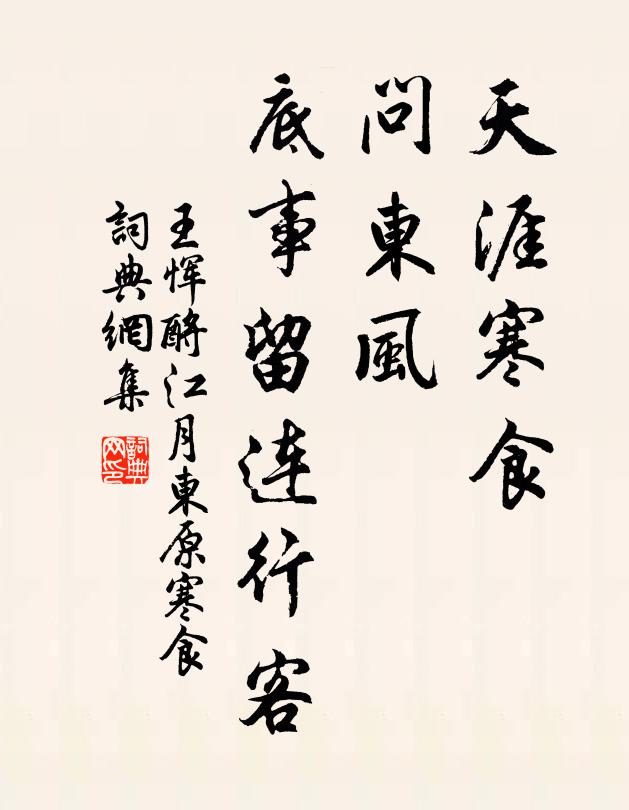 天涯寒食
問東風
底事留連行客
王惲酹江月東原寒食
詞典網集
詞典
网印